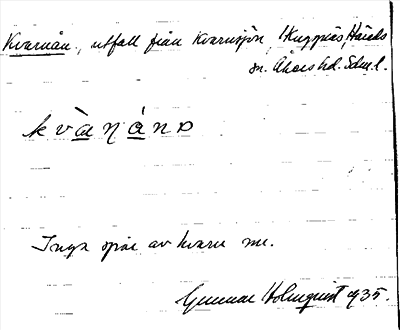 Kvarnån, utfall från Kvarnsjön, Skuggnäs, Härads
sn. Åkers hd. Sdml.
kvàŋánɒ
Inga spår av kvarn nu.
Gunnar Holmquist 1935.